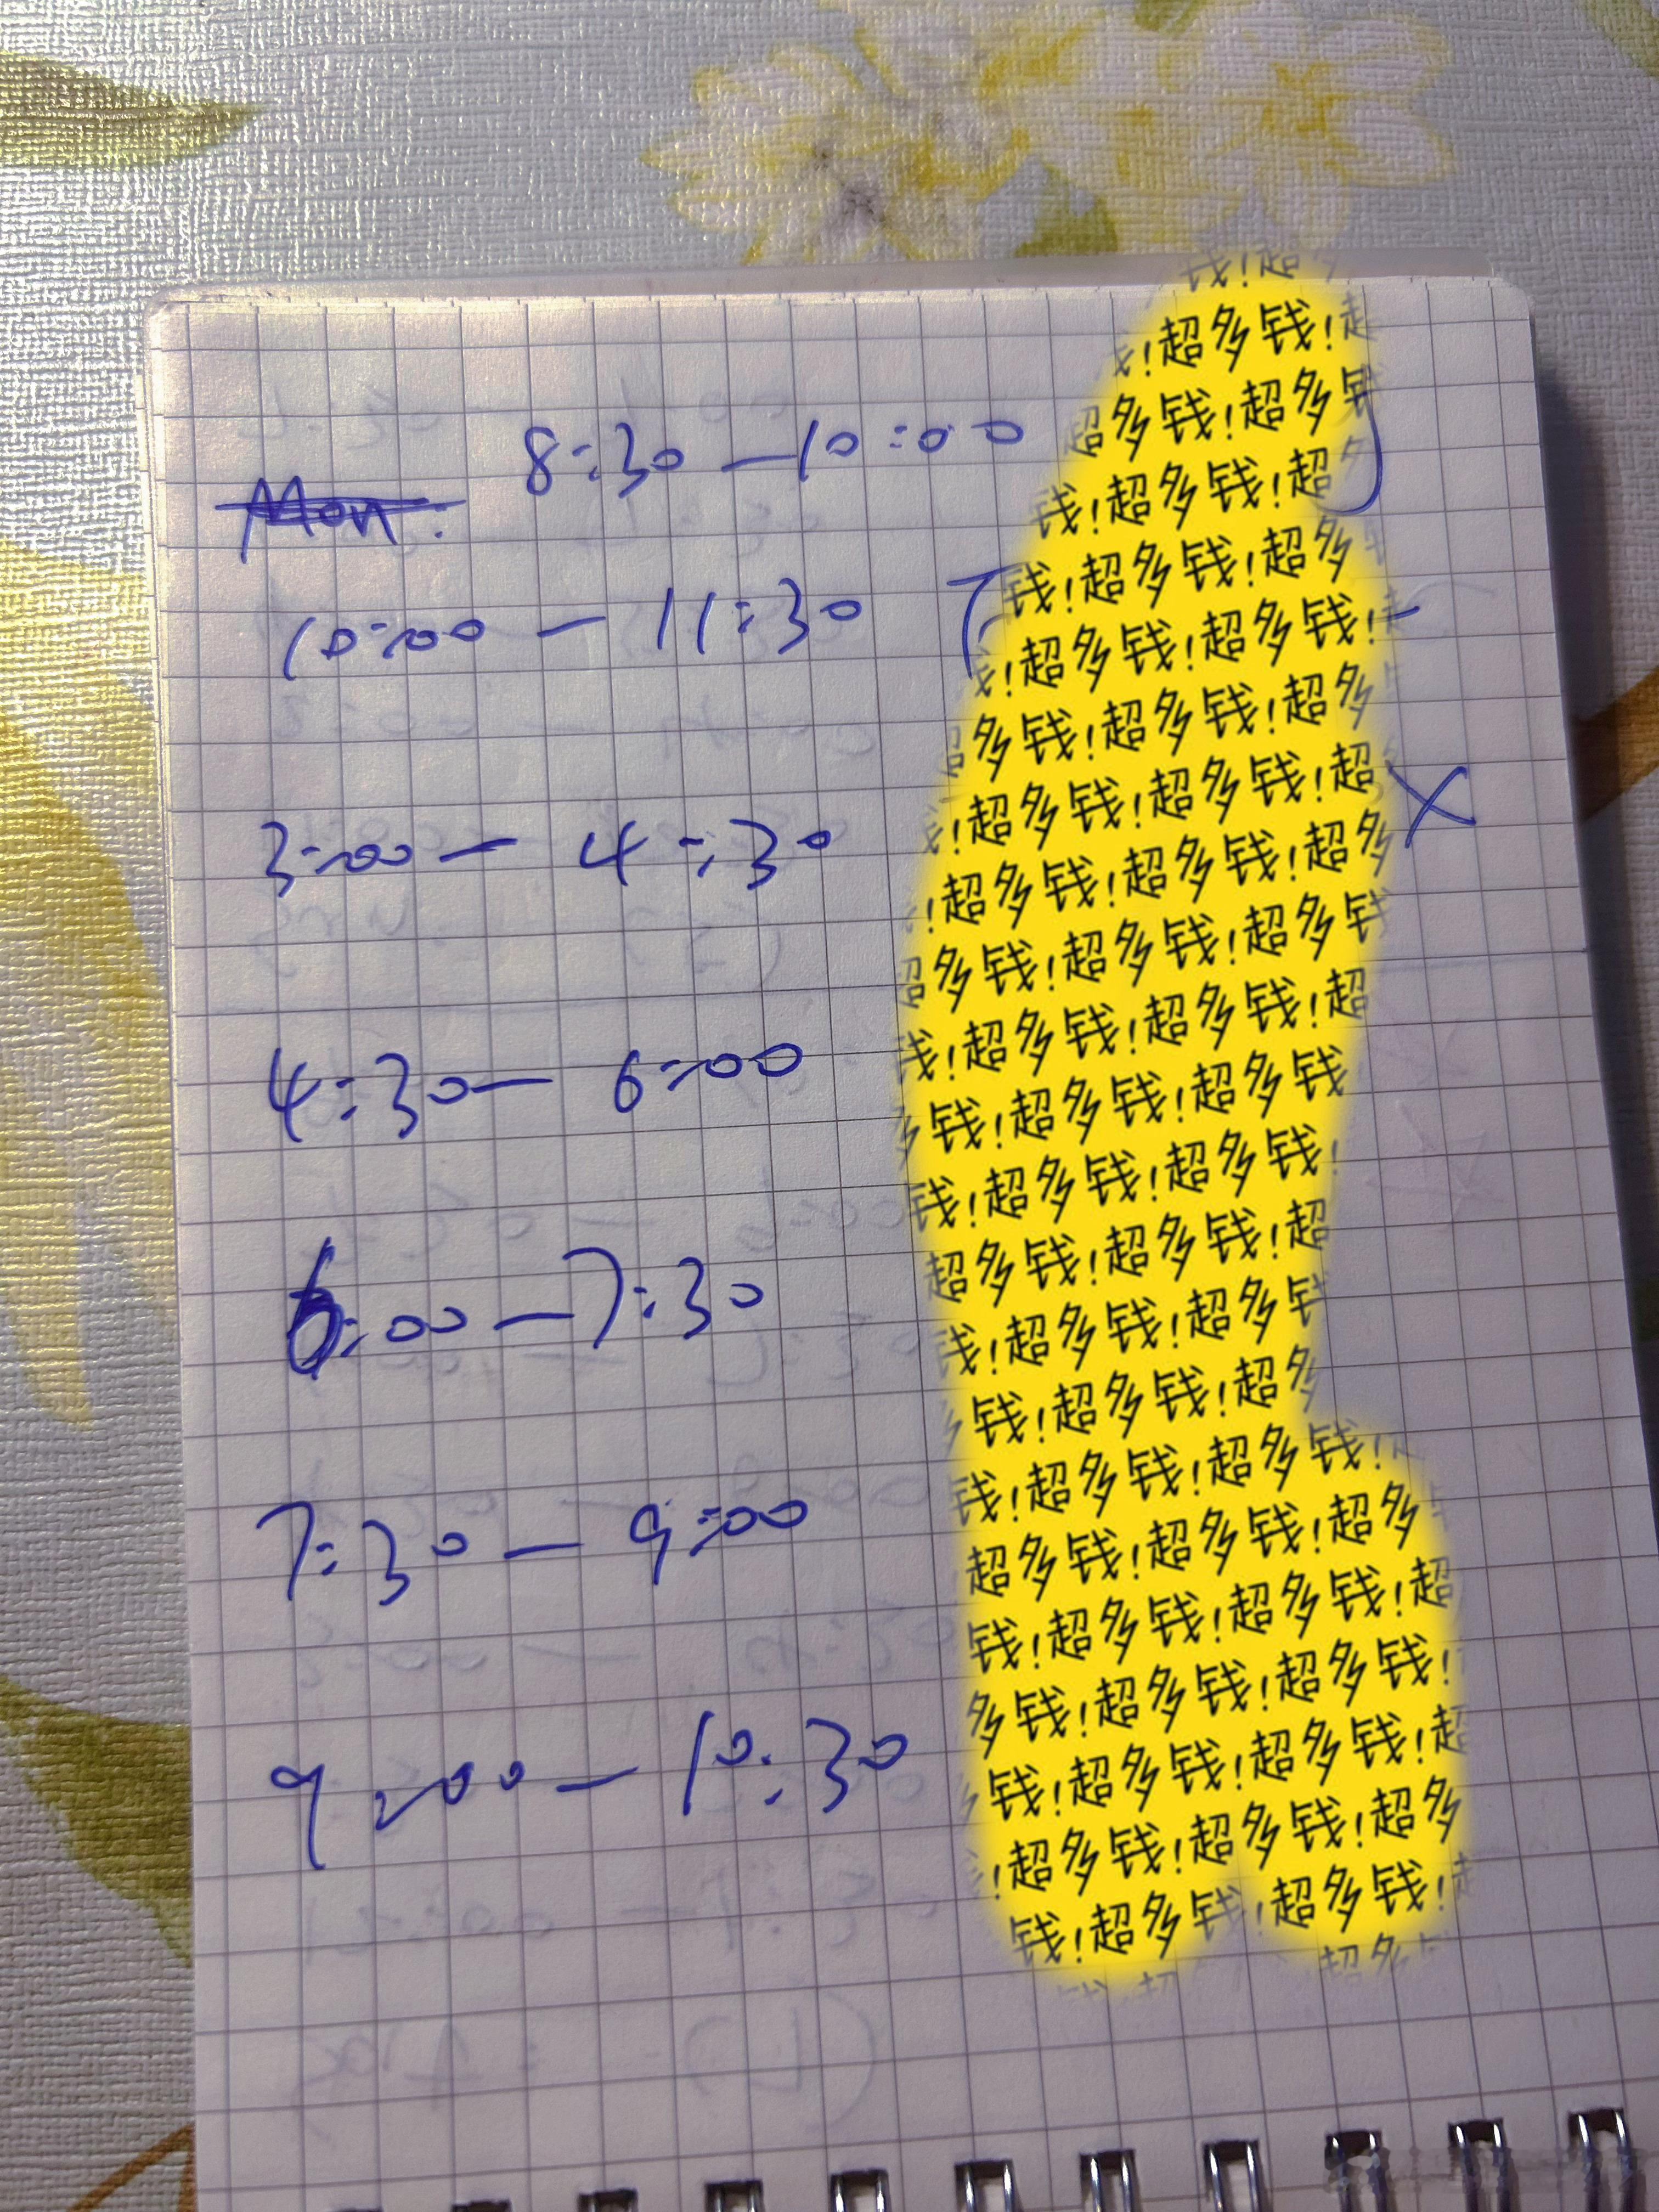 8:30 — 10:00
Mon:
10:00 — 11:30
3:00 — 4:30
4:30 — 6:00
6:00 — 7:30
7:30 — 9:00
9:00 — 10:30
钱!超
!超多钱!超
超多钱!超多钱
钱!超多钱!超
钱!超多钱!超多
!超多钱!超多钱!
多钱!超多钱!超多
!超多钱!超多钱!超
!超多钱!超多钱!超多
超多钱!超多钱!超多钱
钱!超多钱!超多钱!超
多钱!超多钱!超多钱
钱!超多钱!超多钱!
超多钱!超多钱!超
钱!超多钱!超多钱
钱!超多钱!超多
钱!超多钱!超多钱!
超多钱!超多钱!超多
钱!超多钱!超多钱!超
多钱!超多钱!超多钱!
钱!超多钱!超多钱!超
!超多钱!超多钱!超多
钱!超多钱!超多钱!
超多